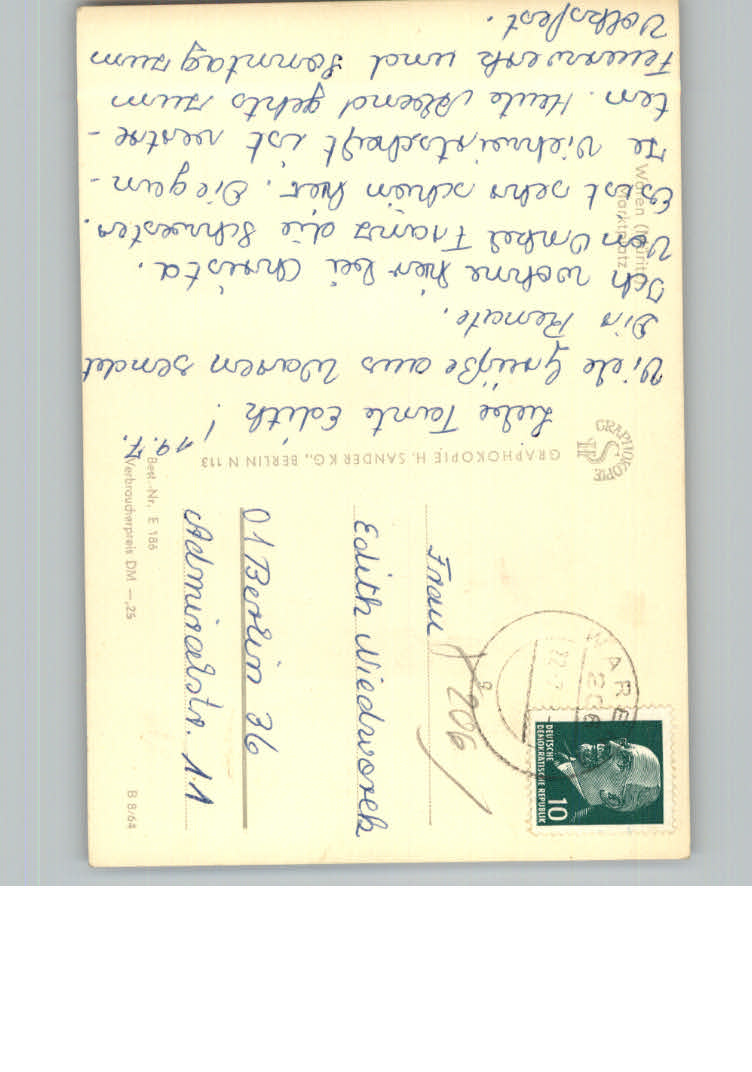 19.7.
Liebe Tante Edith!
Viele Grüße aus Waren sendet
Dir Renate.
Ich wohne hier bei Christa.
Von Onkel Franz die Schwester.
Es ist sehr schön hier. Die gan-
ze Viehwirtschaft ist
ten. Heute Abend gehts zum
Feuerwerk und Sonntag zum
Volksfest.
Waren (Müritz)
Marktplatz
GRAPHOKOPIE
GRAPHOKOPIE H. SANDER KG., BERLIN N 113
Best.-Nr. E 186
Verbraucherpreis DM —,25
B 8/64
Frau
Edith Niedworok
01 Berlin 36
Admiralstr. 11
206
WARE
206
22.7
DEUTSCHE
DEMOKRATISCHE REPUBLIK
10